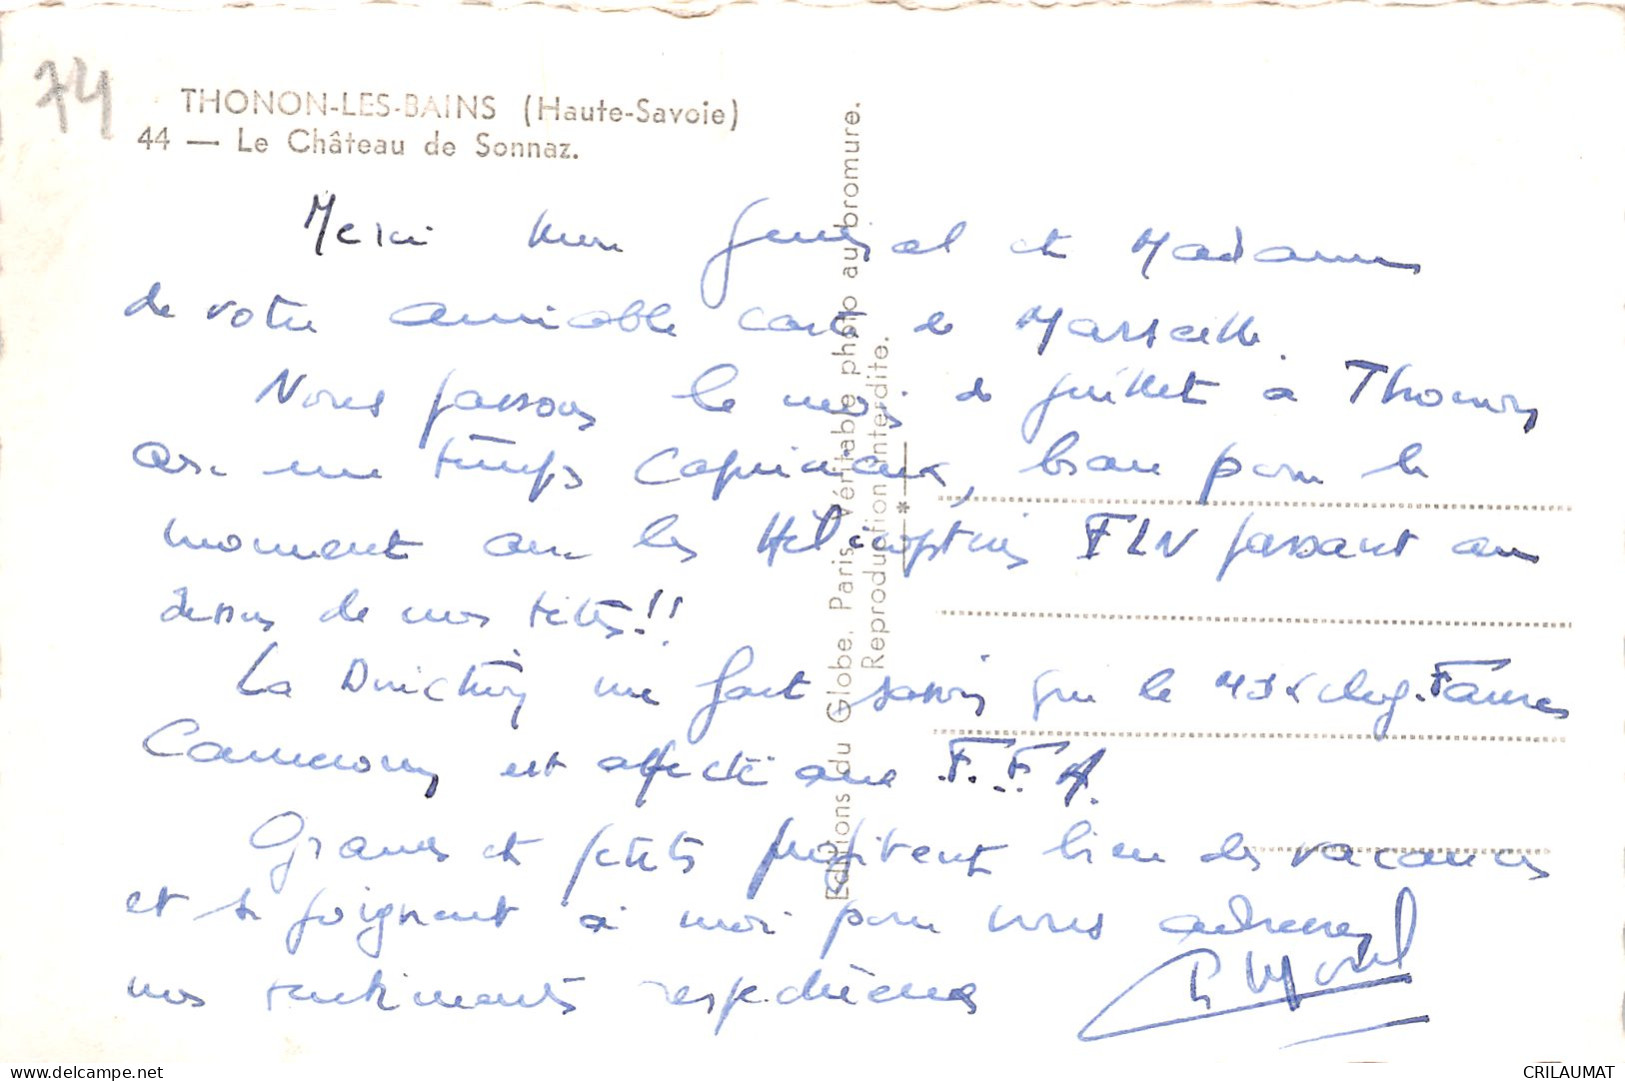 74
THONON-LES-BAINS (Haute-Savoie)
44 — Le Château de Sonnaz.
Merci mon général et Madame
de votre aimable carte de Marseille.
Nous passons le mois de juillet à Thonon
avec un temps capricieux, beau pour le
moment avec les Hélicoptères FLN passant au
dessus de nos têtes!!
La Direction me fait savoir que le
Cameroun est affecté aux F.F.A.
Grands et petits profitent bien des vacances
et se joignent à moi pour vous adresser
nos sentiments respectueux
Editions du Globe, Paris. Véritable photo au bromure.
Reproduction interdite.
*
delcampe.net
CRILAUMAT